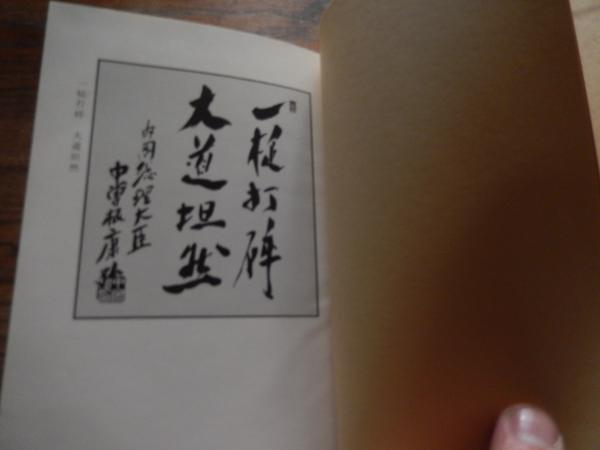 一槌打砕
大道坦然
内閣総理大臣
中曽根康弘
一槌打砕 大道坦然